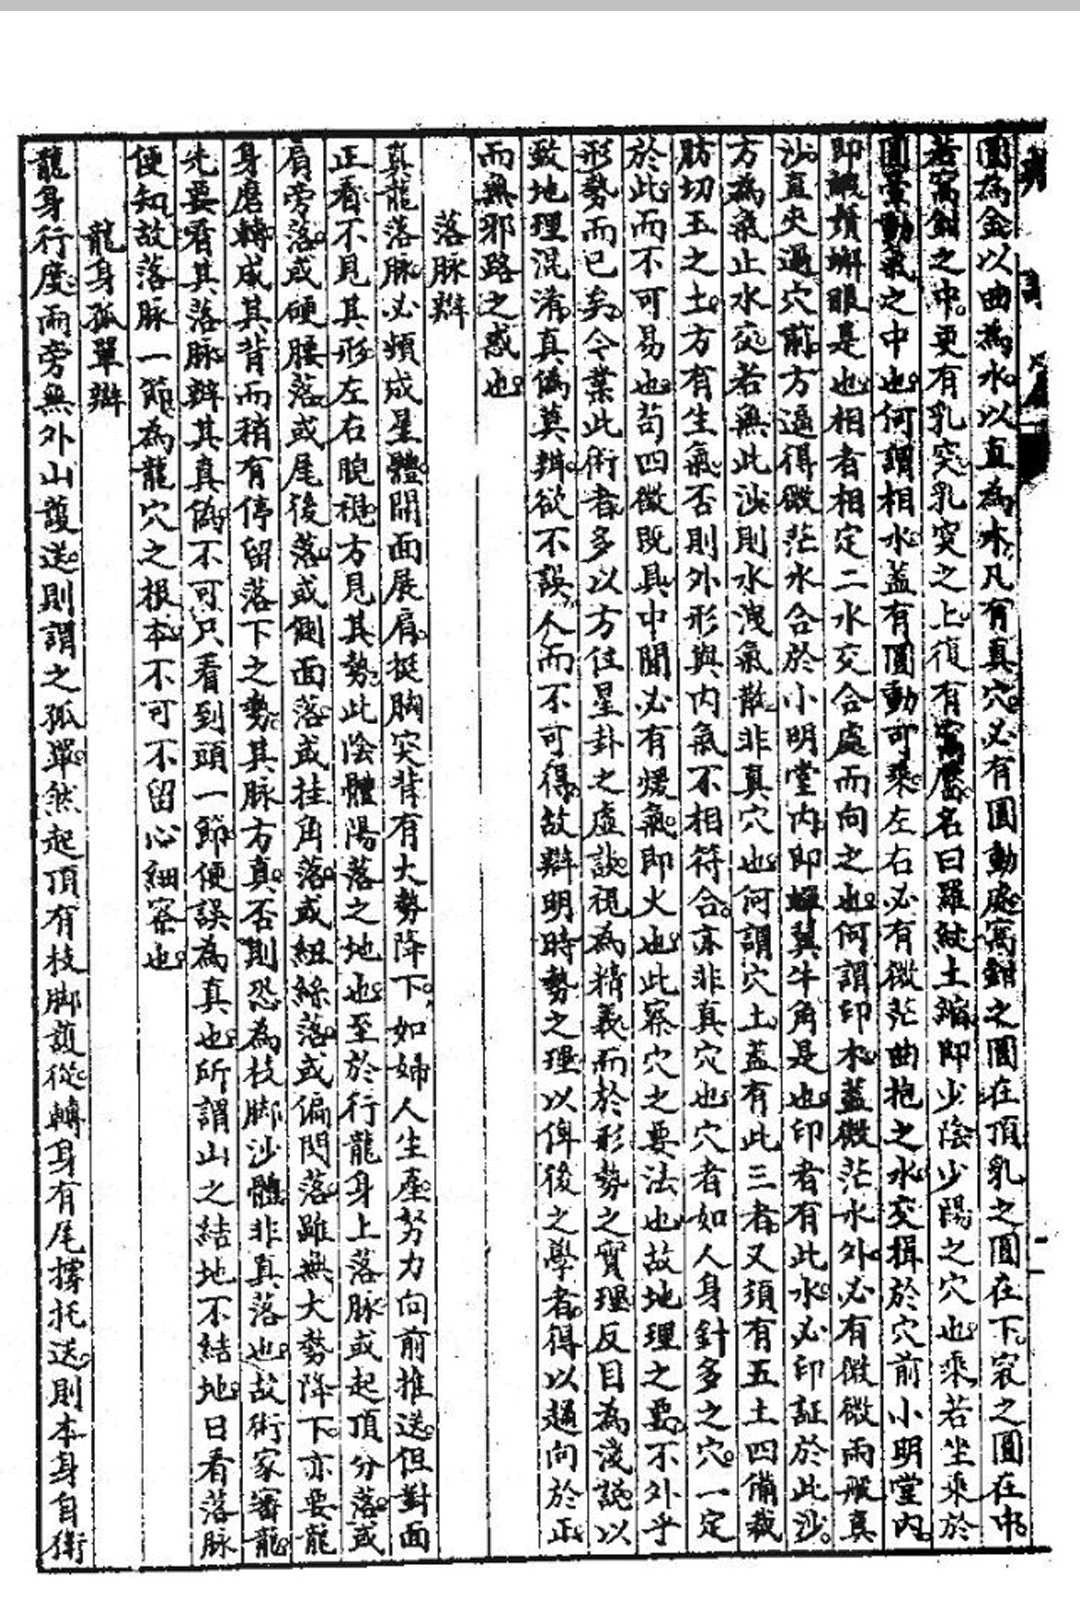 圓為金以曲為水以直為木凡有真穴必有圓動處窩鉗之圓在頂乳之圓在下窩之圓在中
若窩鉗之中更有乳突乳突之上復有窩靨名曰羅紋土縮即少陰少陽之穴也乘若坐乘於
圓暈動氣之中也何謂相水蓋有圓動可乘左右必有微茫曲抱之水交揖於穴前小明堂內
即蝦鬚蠏眼是也相者相定二水交合處而向之也何謂印木蓋微茫水外必有微微兩股真
沙直夾過穴前方逼得微茫水合於小明堂內即蟬翼牛角是也印者有此水必印証於此沙
方為氣止水交若無此沙則水洩氣散非真穴也何謂穴土蓋有此三者又須有五土四備裁
肪切玉之土方有生氣否則外形與內氣不相符合亦非真穴也穴者如人身針多之穴一定
於此而不可易也苟四徵既具中間必有煖氣即火也此察穴之要法也故地理之要不外乎
形勢而已矣今業此術者多以方位星卦之虛談視為精義而於形勢之實理反目為淺說以
致地理混淆真偽莫辨欲不誤人而不可得故辯明時勢之理以俾後之學者得以趨向於正
而無邪路之惑也
落脉辯
真龍落脉必頓成星體開面展肩挺胸突背有大勢降下如婦人生產努力向前推送但對面
正看不見其形左右睨視方見其勢此陰體陽落之地也至於行龍身上落脉或起頂分落或
肩旁落或硬腰落或尾後落或側面落或挂角落或紐絲落或偏閃落雖無大勢降下亦要龍
身磨轉成其背而稍有停留落下之勢其脉方真否則恐為枝脚沙體非真落也故術家審龍
先要看其落脉辨其真偽不可只看到頭一節便誤為真也所謂山之結地不結地日看落脉
便知故落脉一節為龍穴之根本不可不留心細察也
龍身孤單辯
龍身行度而旁無外山護送則謂之孤單然起頂有枝脚護從轉身有尾撐托送則本身自衛